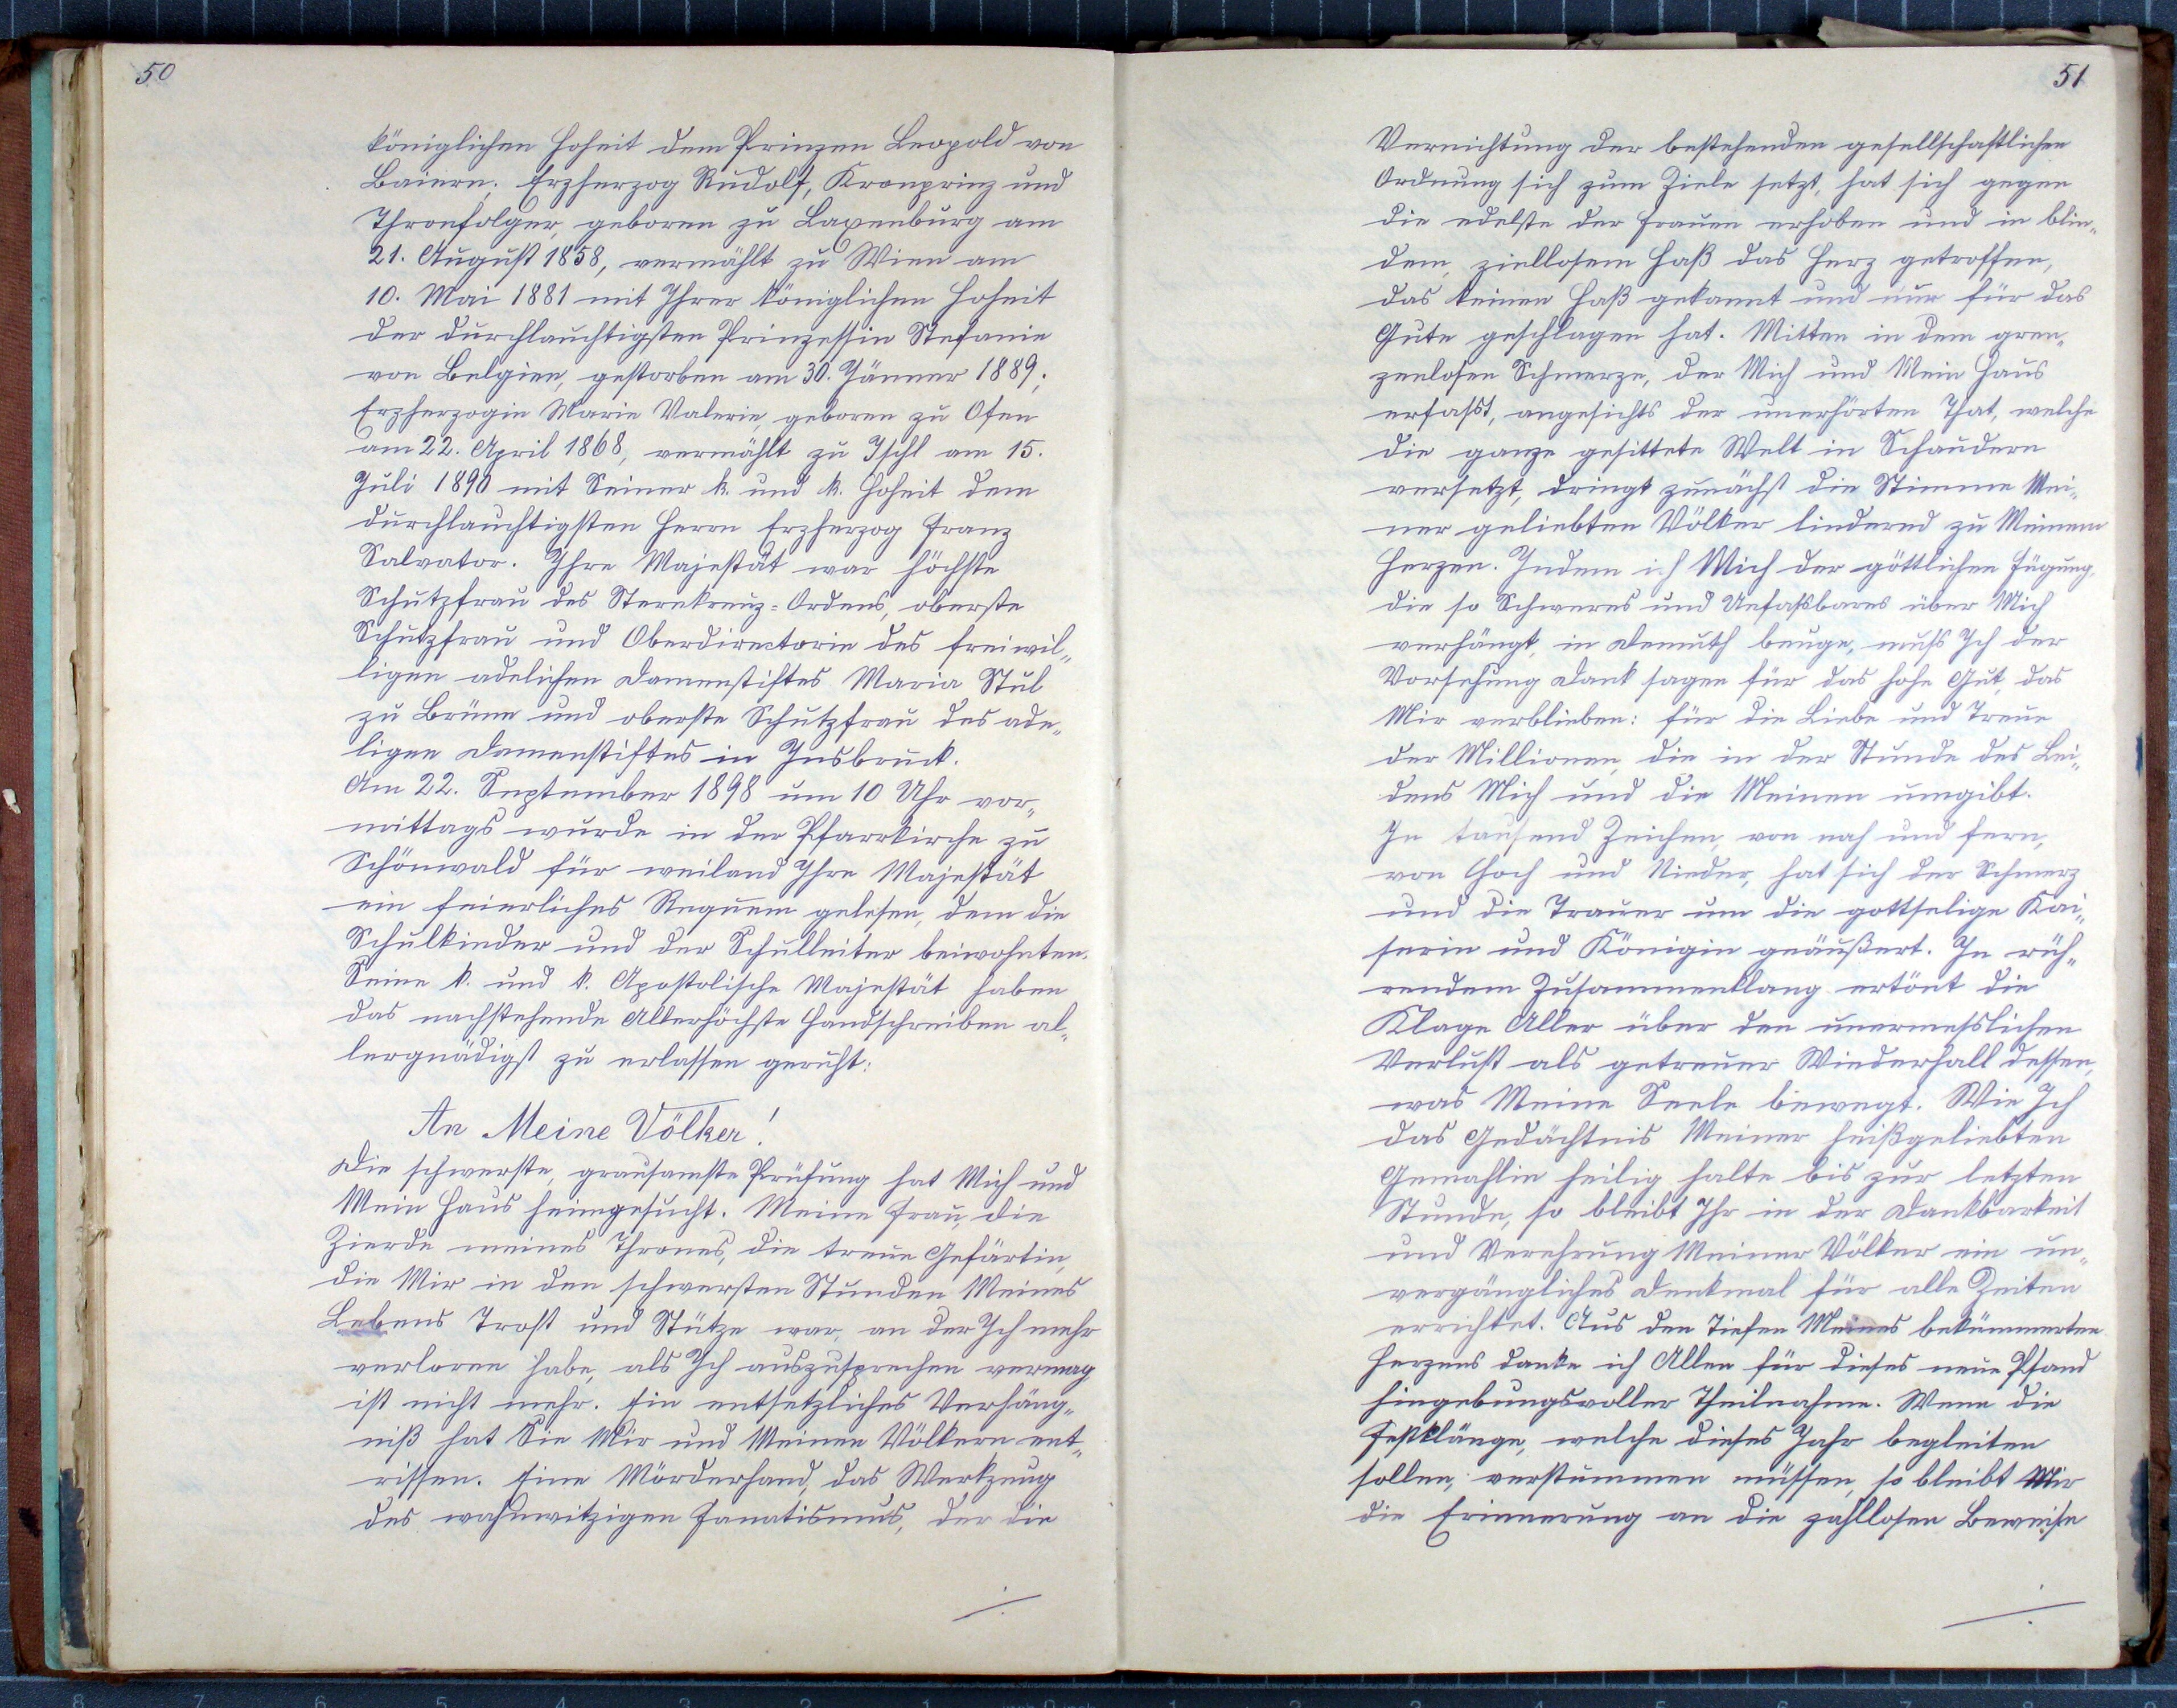 50
königlichen Hoheit dem Prinzen Leopold von
Baiern; Erzherzog Rudolf, Kronprinz und
Thronfolger, geboren zu Laxenburg am
21. August 1858, vermählt zu Wien am
10. Mai 1881 mit Ihrer königlichen Hoheit
der durchlauchtigsten Prinzessin Stefanie
von Belgien, gestorben am 30. Jänner 1889;
Erzherzogin Marie Valerie, geboren zu Ofen
am 22. April 1868, vermählt zu Ischl am 15.
Juli 1890 mit Seiner k. und k. Hoheit dem
durchlauchtigsten Herrn Erzherzog Franz
Salvator. Ihre Majestät war höchste
Schutzfrau des Sternkreuz=Ordens, oberste
Schutzfrau und Oberdirectorin des freiwil„
ligen adelichen Damenstiftes Maria Stul
zu Brünn und oberste Schutzfrau des ade„
ligen Damenstiftes in Insbruck.
Am 22. September 1898 um 10 Uhr vor„
mittags wurde in der Pfarrkirche zu
Schönwald für weiland Ihre Majestät
ein feierliches Requem gelesen, dem die
Schulkinder und der Schulleiter beiwohnten.
Seine k. und k. Apostolische Majestät haben
das nachstehende Allerhöchste Handschreiben al„
lergnädigst zu erlassen geruht:
An Meine Völker!
Die schwerste, grausamste Prüfung hat Mich und
Mein Haus heimgesucht. Meine Frau, die
Zierde meines Thrones, die treue Gefärtin,
die Mir in den schwersten Stunden Meines
Lebens Trost und Stütze war, an der Ich mehr
verloren habe, als Ich auszusprechen vermag
ist nicht mehr. Ein entsetzliches Verhäng„
niß hat Sie Mir und Meinen Völkern ent„
rissen. Eine Mörderhand, das Werkzeug
des wahnwitzigen Fanatismus, der die
./.
51
Vernichtung der bestehenden gesellschaftlichen
Ordnung sich zum Ziele setzt, hat sich gegen
die edelste der Frauen erhoben und in blin„
dem, ziellosem Haß das Herz getroffen,
das keinen Haß gekannt und nur für das
Gute geschlagen hat. Mitten in dem gren„
zenlosen Schmerze, der Mich und Mein Haus
erfasst, angesichts der unerhörten That, welche
die ganze gesittete Welt in Schaudern
versetzt, dringt zunächst die Stimme Mei„
ner geliebten Völker lindernd zu Meinem
Herzen. Indem ich Mich der göttlichen Fügung,
die so Schweres und Unfassbares über Mich
verhängt, in Demuth beuge, muss Ich der
Vorsehung Dank sagen für das hohe Gut, das
Mir verblieben: für die Liebe und Treue
der Millionen, die in der Stunde des Lei„
dens Mich und die Meinen umgibt.
In tausend Zeichen, von nah und fern,
von Hoch und Nieder, hat sich der Schmerz
und die Trauer um die gottselige Kai„
serin und Königin geäußert. In rüh„
rendem Zusammenklang ertönt die
Klage Aller über den unermesslichen
Verlust als getreuer Wiederhall dessen,
was Meine Seele bewegt. Wie Ich
das Gedächtnis Meiner heißgeliebten
Gemahlin heilig halte bis zur letzten
Stunde, so bleibt Ihr in der Dankbarkeit
und Verehrung Meiner Völker ein un„
vergängliches Denkmal für alle Zeiten
errichtet. Aus den Tiefen Meines bekümmerten
Herzens danke ich Allen für dieses neue Pfand
hingebungsvoller Theilnahme. Wenn die
Festklänge, welche dieses Jahr begleiten
sollen, verstummen müssen, so bleibt Mir
die Erinnerung an die zahllosen Beweise
./.